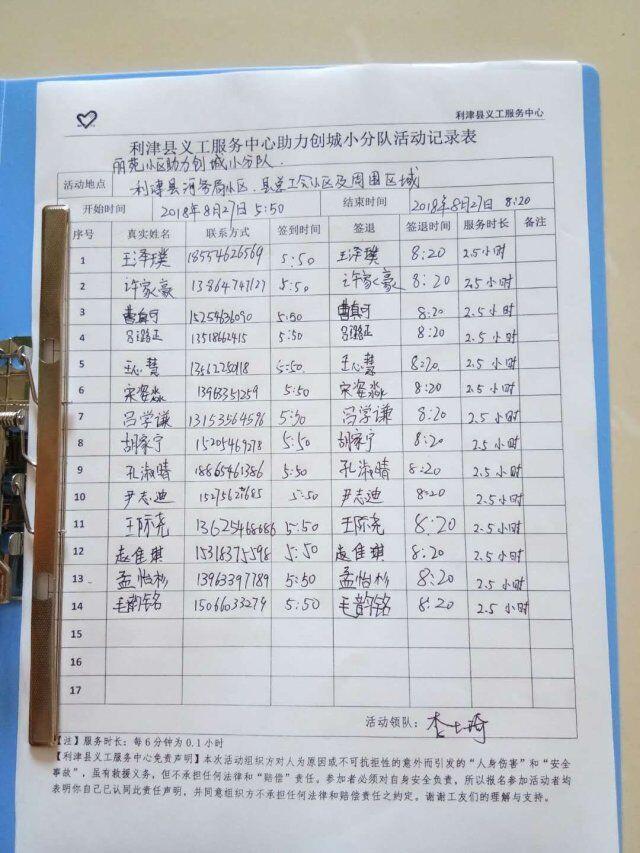 利津县义工服务中心
利津县义工服务中心助力创城小分队活动记录表
丽苑小区助力创城小分队.
活动地点 利津县河务局小区.县总工会小区及周围区域
开始时间 2018年8月27日 5:50 结束时间 2018年8月27日 8:20
序号 真实姓名 联系方式 签到时间 签退 签退时间 服务时长 备注
1 王泽璞 18554626569 5:50 王泽璞 8:20 2.5小时
2 许家豪 13864747127 5:50 许家豪 8:20 2.5小时
3 曹真可 15254636090 5:50 曹真可 8:20 2.5小时
4 吕璐正 13518662415 5:50 吕璐正 8:20 2.5小时
5 王心慧 13562250118 5:50 王心慧 8:20 2.5小时
6 宋姿淼 13963351259 5:50 宋姿淼 8:20 2.5小时
7 吕学谦 13153564596 5:50 吕学谦 8:20 2.5小时
8 胡家宁 15205469278 5:50 胡家宁 8:20 2.5小时
9 孔淑晴 18865461386 5:50 孔淑晴 8:20 2.5小时
10 尹志迪 5:50 尹志迪 8:20 2.5小时
11 王际尧 5:50 王际尧 8:20 2.5小时
12 赵佳琪 15318375598 5:50 赵佳琪 8:20 2.5小时
13 孟怡杉 13963397789 5:50 孟怡杉 8:20 2.5小时
14 毛韵铭 15066033279 5:50 毛韵铭 8:20 2.5小时
15
16
17
活动领队:
【注】服务时长:每6分钟为0.1小时
【利津县义工服务中心免责声明】本次活动组织方对人为原因或不可抗拒性的意外而引发的“人身伤害”和“安全
事故”,虽有救援义务,但不承担任何法律和“赔偿”责任。参加者必须对自身安全负责,所以报名参加活动者均
表明你自己已认同此责任声明,并同意组织方不承担任何法律和赔偿责任之约定。谢谢工友们的理解与支持。